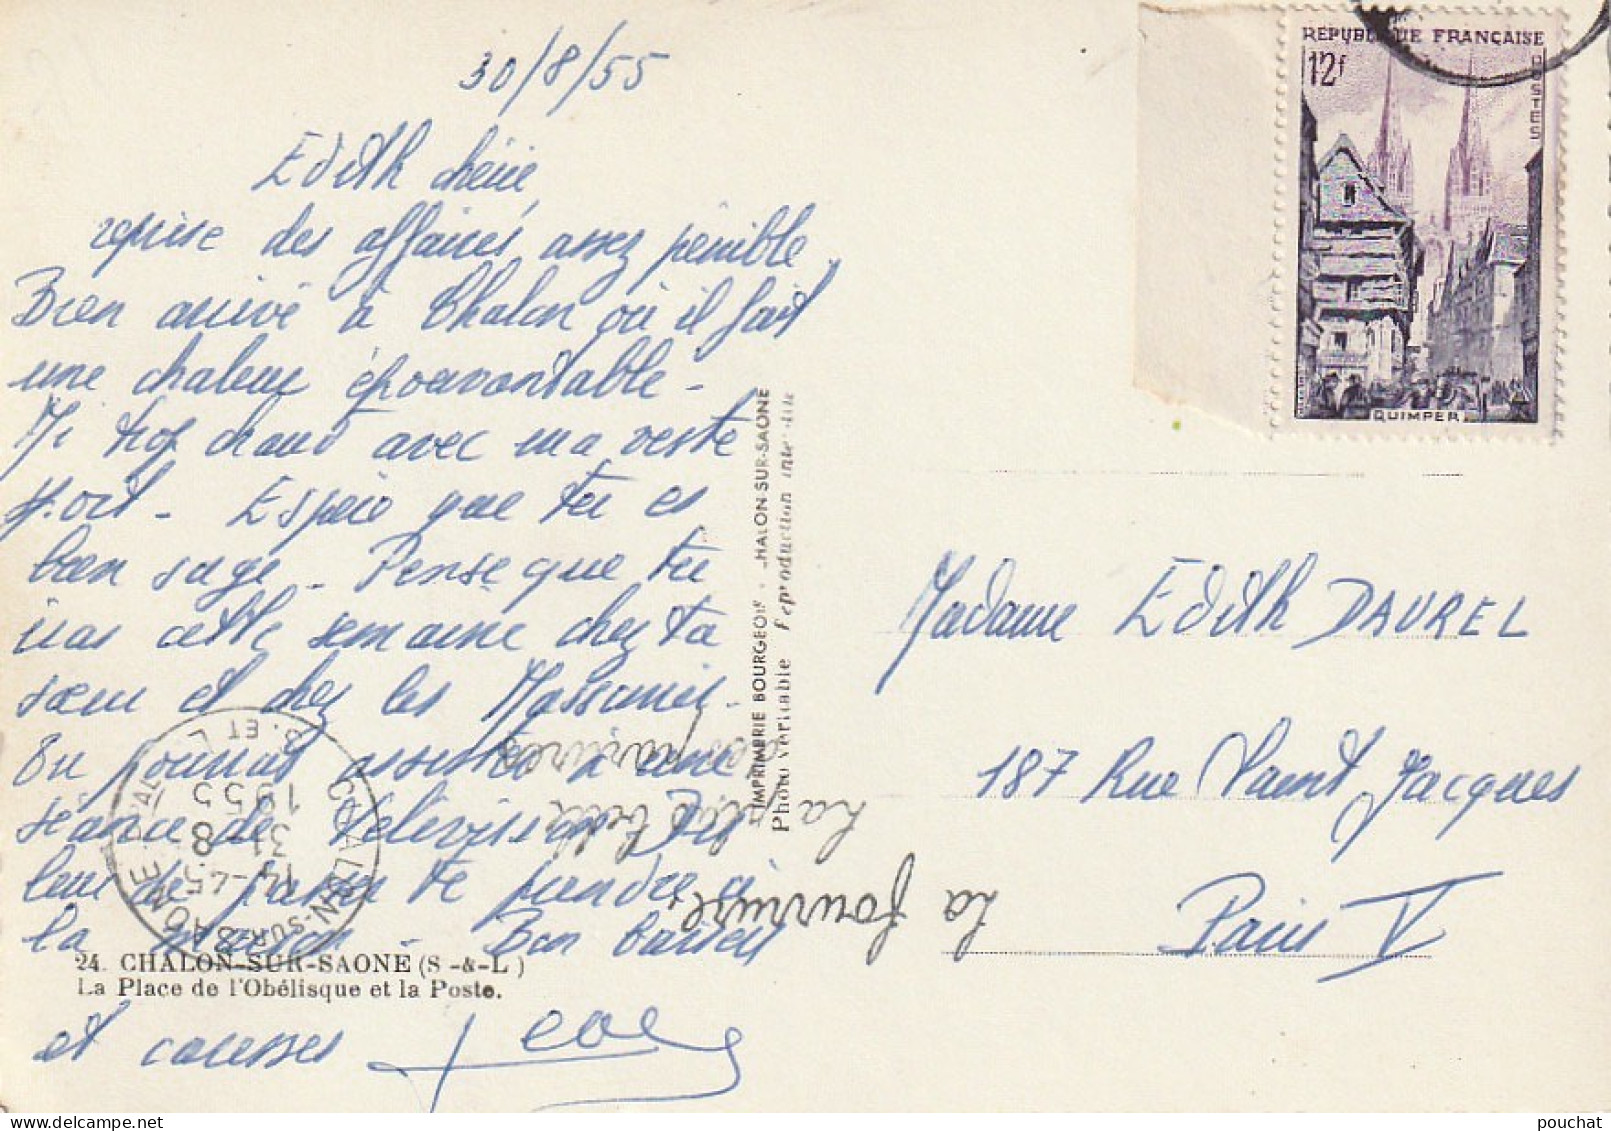 30/8/55
Edith chérie,
reprise des affaires assez pénible.
Bien arrivé à Chalon où il fait
une chaleur épouvantable -
Ai trop chaud avec ma veste
sport - Espère que tu es
bien sage - Pense que tu
vas cette semaine chez ta
sœur et chez les
On pourrait assister à une
séance de télévision Dis
leur de passer te prendre à
la maison - Bon baisers
et caresses
24. CHALON-SUR-SAONE (S -&-L)
La Place de l'Obélisque et la Poste.
CHALON-SUR-SAONE
S. ET L.
14-45
31-8
1955
IMPRIMERIE BOURGEOIS - CHALON-SUR-SAONE
Photo véritable Reproduction interdite
La fourrure,
la plus belle
des parures
REPUBLIQUE FRANÇAISE
12f
POSTES
QUIMPER
Madame Edith DAUREL
187 Rue Saint Jacques
Paris V
pouchat